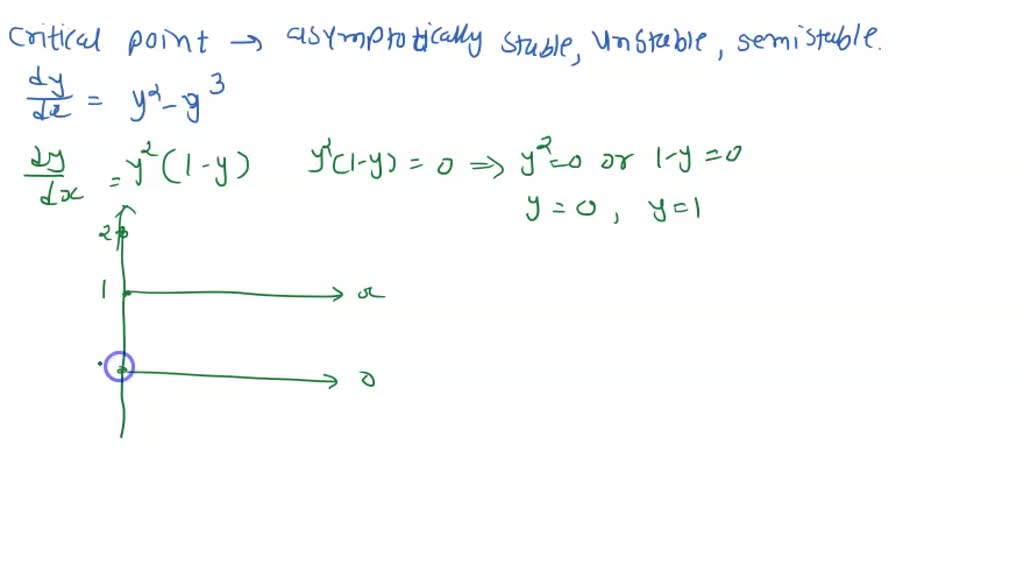 Critical point → asymptotically stable, unstable, semistable.
dy/dx = y² - y³
dy/dx = y²(1-y) y²(1-y) = 0 ⇒ y²=0 or 1-y=0
y = 0, y=1
2
1 x
0